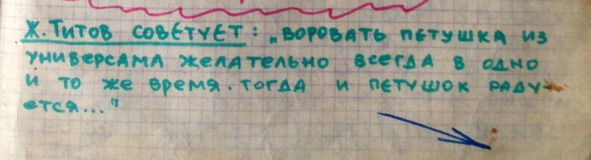 Ж. Титов советует: „воровать петушка из
универсама желательно всегда в одно
и то же время. тогда и петушок раду-
ется..."